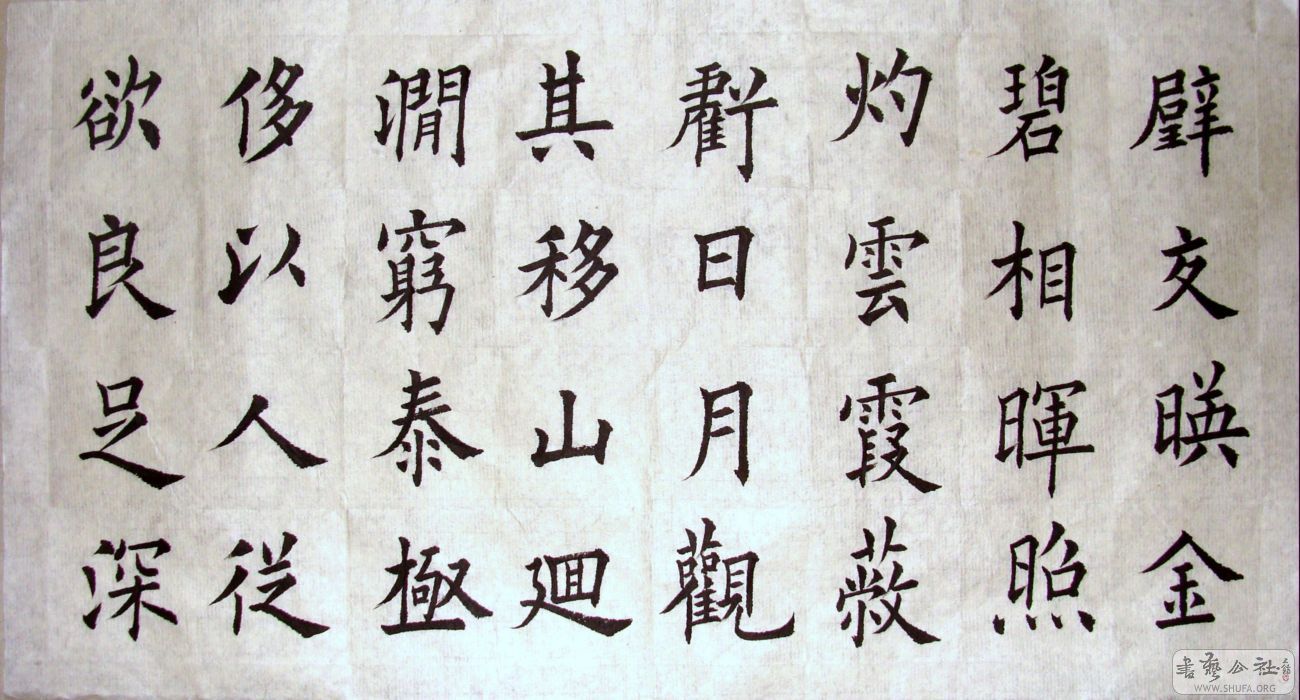 璧交暎金
碧相暉照
灼雲霞蔽
虧日月觀
其移山廻
澗窮泰極
侈以人從
欲良足深
書藝公社
WWW.SHUFA.ORG